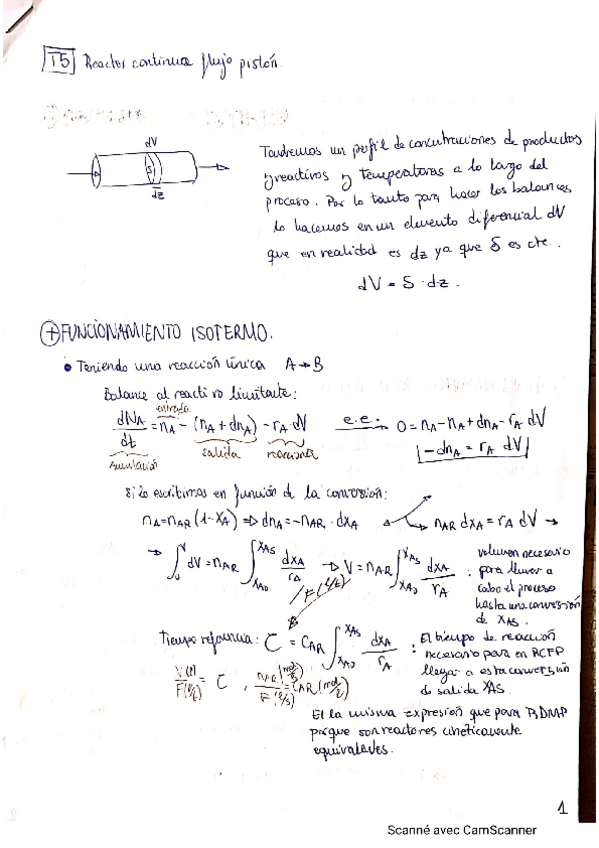 T5 Reactor continuo flujo pistón.
dV
S
dz
Tendremos un perfil de concentraciones de productos
y reactivos y temperaturas a lo largo del
proceso. Por lo tanto para hacer los balances
lo hacemos en un elemento diferencial dV
que en realidad es dz ya que S es cte.
dV = S · dz.
+ FUNCIONAMIENTO ISOTERMO.
• Teniendo una reacción única A → B
Balance al reactivo limitante:
entrada
dNA/dt = nA - (nA + dnA) - rA · dV
acumulación salida reacciona
e.e: 0 = nA - nA + dnA - rA dV
- dnA = rA dV
Si lo escribimos en función de la conversión:
nA = nAR (1-XA) ⇒ dnA = -nAR · dXA
nAR dXA = rA dV →
→ ∫ dV = nAR ∫ dXA/rA → V = nAR ∫ dXA/rA :
XAS
XA0
volumen necesario
para llevar a
cabo el proceso
hasta una conversión
de XAS.
Tiempo referencia: τ = CAR ∫ dXA/rA :
El tiempo de reacción
necesario para en RCFP
llegar a esta conversión
de salida XAS.
V(l)/F(l/s) = τ , nAR(mol/s)/F(l/s) = CAR (mol/l)
Es la misma expresión que para RDMP
porque son reactores cinéticamente
equivalentes.
1
Scanné avec CamScanner